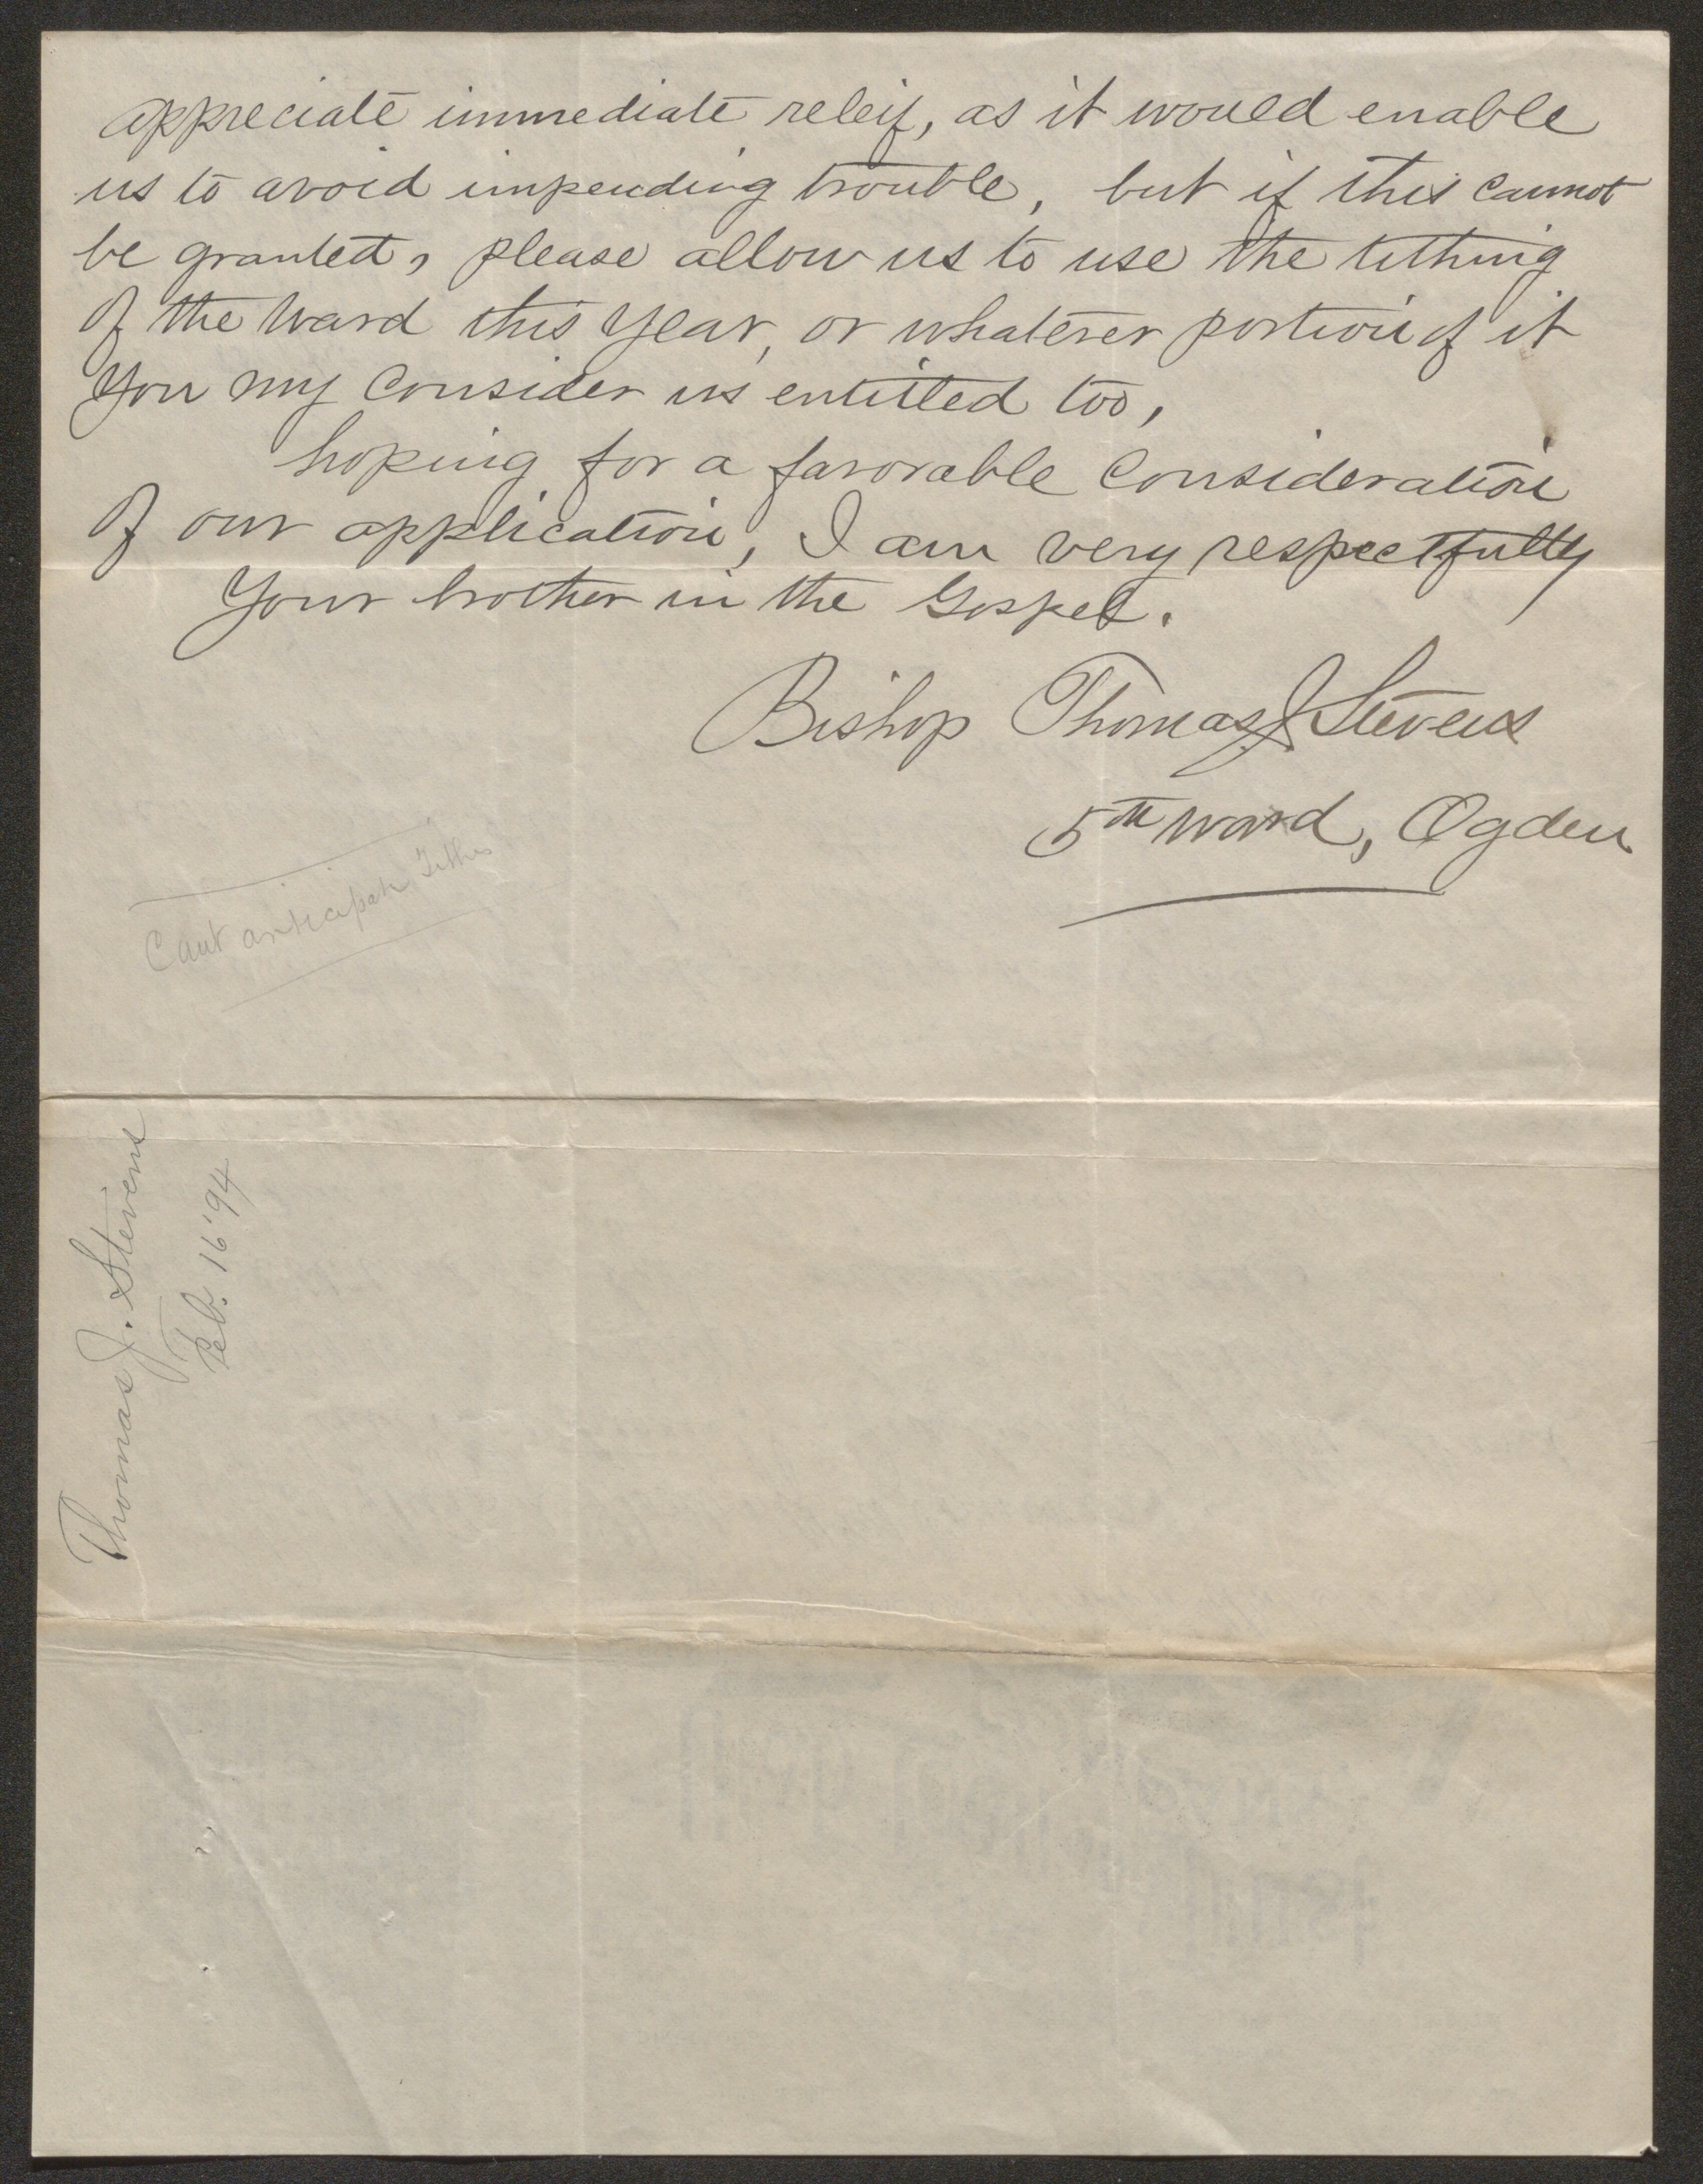 appreciate immediate releif, as it would enable
us to avoid impending trouble, but if this cannot
be granted, please allow us to use the tithing
of the Ward this year, or whatever portion of it
you my consider us entitled too,
hoping for a favorable consideration
of our application, I am very respectfully
Your brother in the Gospel.
Bishop Thomas J. Stevens
5th Ward, Ogden
Cant anticipate Tithes
Thomas J. Stevens
Feb. 16 '94